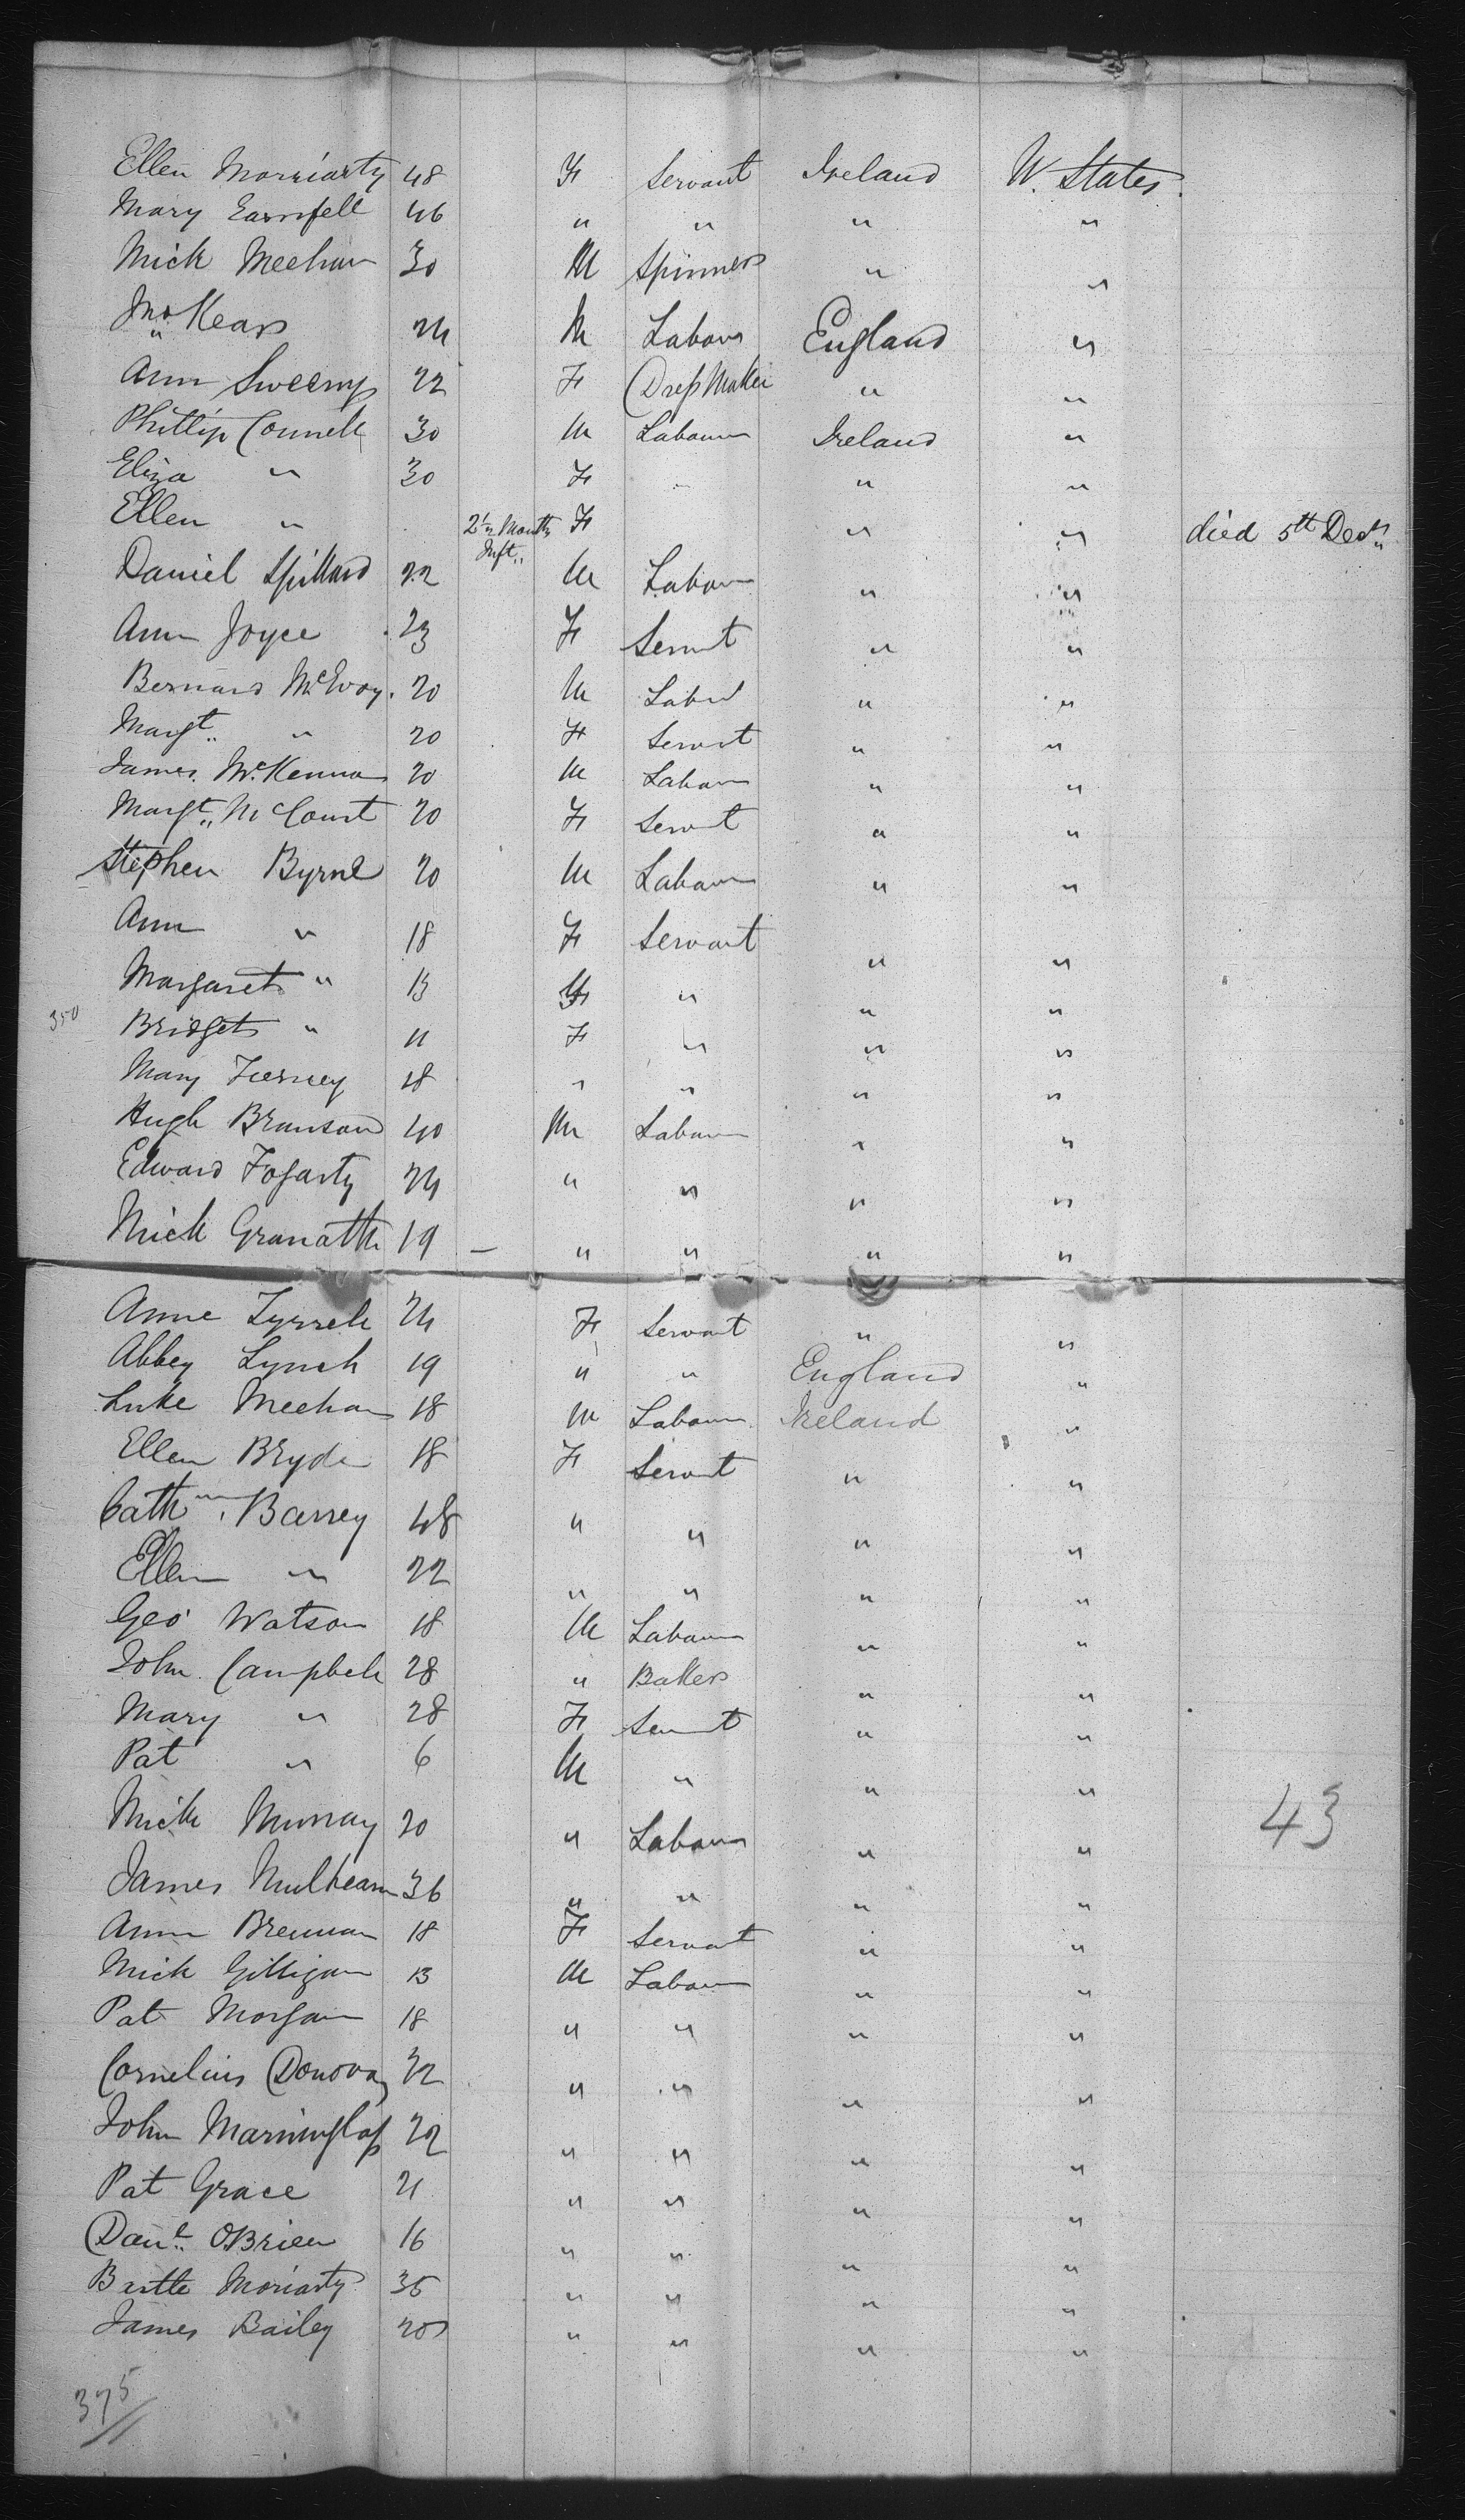 Ellen Morriarty 48 F Servant Ireland U. States
Mary Earnfell 46 " " " "
Mick Meehan 30 M Spinner " "
Jno. Kears 24 M Labour England "
Ann Sweeny 22 F Dress Maker " "
Phillip Connell 30 M Labour Ireland "
Eliza " 30 F " "
Ellen " 2½ Months Inft. F " " died 5th Decr.
Daniel Spillard 22 M Labour " "
Ann Joyce 23 F Servnt " "
Bernard McEvoy 20 M Labr " "
Margt. " 20 F Servnt " "
James McKenna 20 M Labour " "
Margt. McCourt 20 F Servnt " "
Stephen Byrne 20 M Labour " "
Ann " 18 F Servant " "
Margaret " 13 F " " "
350 Bridget " 11 F " " "
Mary Tierney 18 " " " "
Hugh Branson 40 M Labour " "
Edward Fogarty 24 " " " "
Mick Granath 19 – " " " "
Anne Tyrrell 24 F Servant " "
Abbey Lynch 19 " " England "
Luke Meehan 18 M Labour Ireland "
Ellen Bryde 18 F Servnt " "
Cathne. Barrey 48 " " " "
Ellen " 22 " " " "
Geo Watson 18 M Labour " "
John Campbell 28 " Baker " "
Mary " 28 F Servnt " "
Pat " 6 M " " "
Mick Murray 20 " Labour " "
43
James Mulhearn 36 " " " "
Ann Brennan 18 F Servant " "
Mick Gilligan 13 M Labour " "
Pat Morgan 18 " " " "
Cornelius Donovan 32 " " " "
John 22 " " " "
Pat Grace 21 " " " "
Danl. OBrien 16 " " " "
Bartle Moriarty 35 " " " "
James Bailey 20 " " " "
375